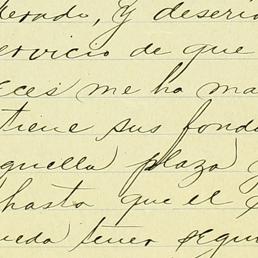 derado, y deseria
servicio de que
eces me ha ma
tiene sus fondo
quella plaza y
hasta que el
ueda tener segu